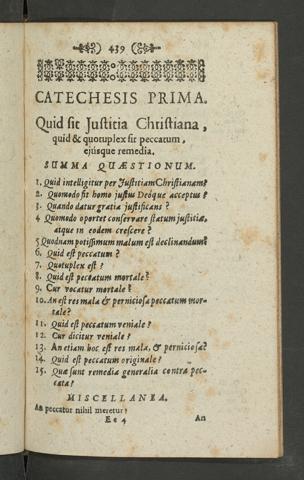 439
CATECHESIS PRIMA.
Quid sit Justitia Christiana,
quid & quotuplex sit peccatum,
ejusque remedia.
SUMMA QUÆSTIONUM.
1. Quid intelligitur per Justitiam Christianam?
2. Quomodo fit homo justus Deóque acceptus?
3. Quando datur gratia justificans?
4 Quomodo oportet conservare statum justitiæ,
atque in eodem crescere?
5 Quodnam potissimum malum est declinandum?
6. Quid est peccatum?
7. Quotuplex est?
8. Quid est peccatum mortale?
9. Cur vocatur mortale?
10. An est res mala & perniciosa peccatum mor-
tale?
11. Quid est peccatum veniale?
12. Cur dicitur veniale?
13. An etiam hoc est res mala, & perniciosa?
14. Quid est peccatum originale?
15. Quæ sunt remedia generalia contra pec-
cata?
MISCELLANEA.
An peccatur nihil meretur?
Ee 4 An